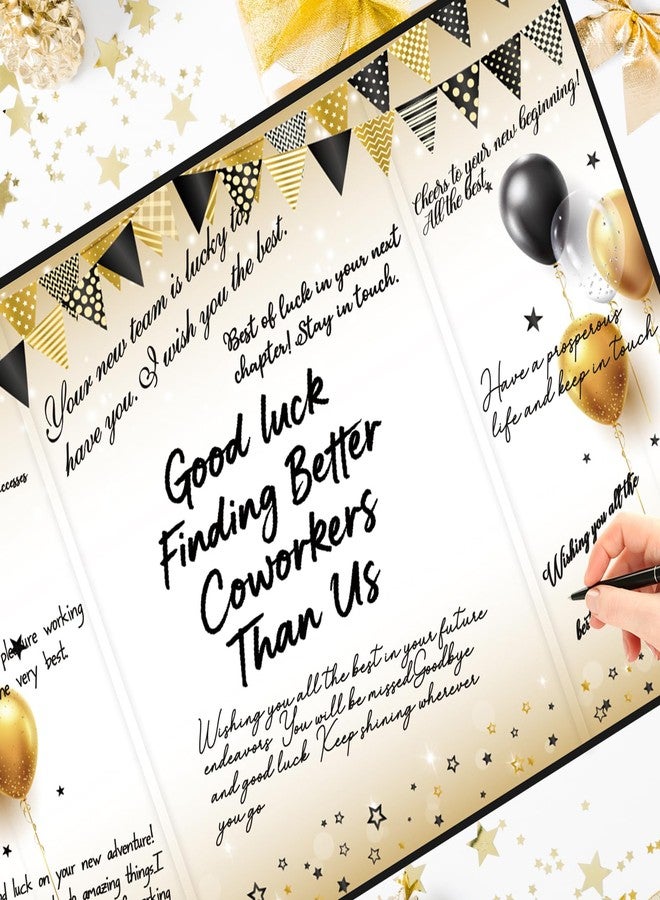 Your new team is lucky to
have you. I wish you the best.
Best of luck in your next
chapter! Stay in touch.
Good luck
Finding Better
Coworkers
Than Us
Wishing you all the best in your future
endeavors You will be missedGoodbye
and good luck Keep shining wherever
you go
Cheers to your new beginning!
All the best.
Have a prosperous
life and keep in touch
Wishing you all the
working
very best.
luck on your new adventure!
amazing things.I
working